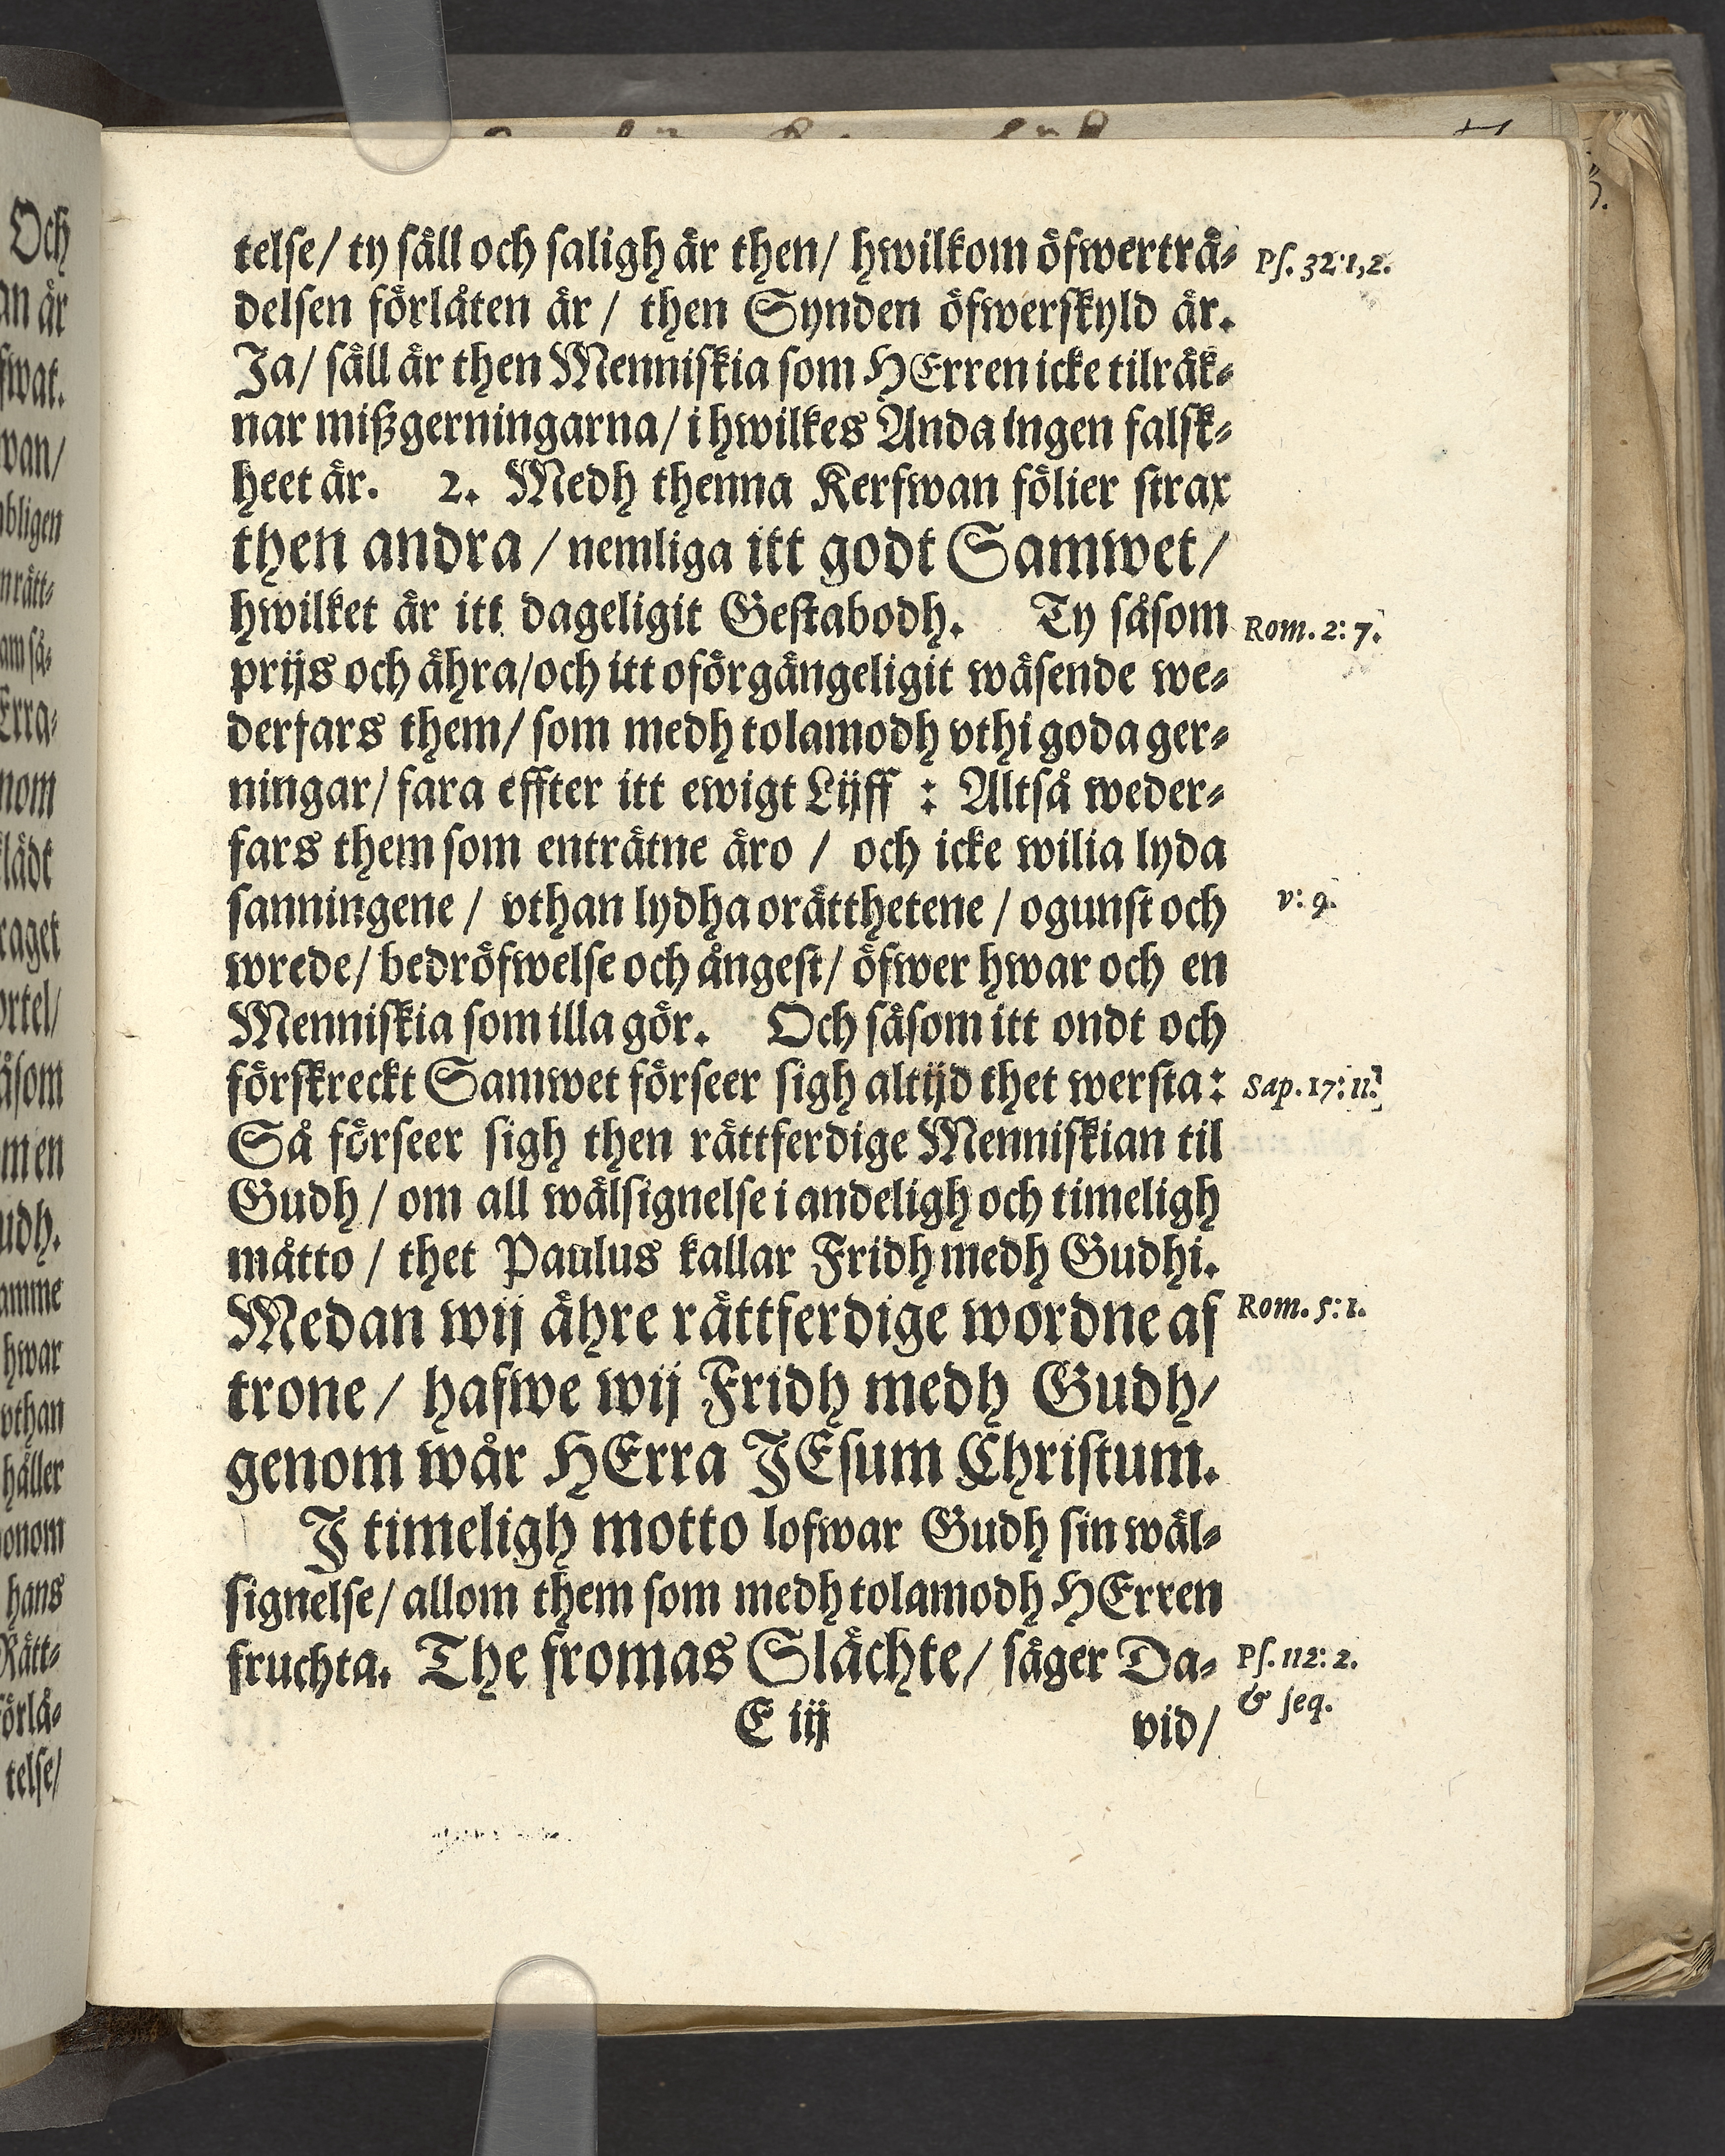 telse/ ty säll och saligh är then/ hwilkom öfwerträ- Ps. 32:1,2.
delsen förlåten är / then Synden öfwerskyld är.
Ja/ säll är then Menniskia som HErren icke tilräk-
nar mißgerningarna/ i hwilkes Anda ingen falsk-
heet är. 2. Medh thenna Kerfwan fölier strax
then andra / nemliga itt godt Samwet/
hwilket är itt dageligit Gestabodh. Ty såsom Rom. 2: 7.
prijs och ähra/och itt oförgängeligit wäsende we-
derfars them/ som medh tolamodh vthi goda ger-
ningar/ fara effter itt ewigt Lijff : Altså weder-
fars them som enträtne äro / och icke wilia lyda
sanningene / vthan lydha orätthetene / ogunst och v: 9.
wrede/ bedröfwelse och ångest/ öfwer hwar och en
Menniskia som illa gör. Och såsom itt ondt och
förskreckt Samwet förseer sigh altijd thet wersta: Sap. 17: 11.
Så förseer sigh then rättferdige Menniskian til
Gudh / om all wälsignelse i andeligh och timeligh
måtto / thet Paulus kallar Fridh medh Gudhi.
Medan wij ähre rättferdige wordne af Rom. 5: 1.
trone / hafwe wij Fridh medh Gudh/
genom wår HErra JEsum Christum.
J timeligh motto lofwar Gudh sin wäl-
signelse/ allom them som medh tolamodh HErren
fruchta. The fromas Slächte/ säger Da- Ps. 112: 2.
& seq.
E iij vid/
Och
an är
fwat.
wan/
bligen
nrätt-
am så-
Erra-
nom
lädt
raget
ortel/
åsom
men
udh.
amme
hwar
vthan
håller
onom
hans
Rätt-
örlå-
telse/